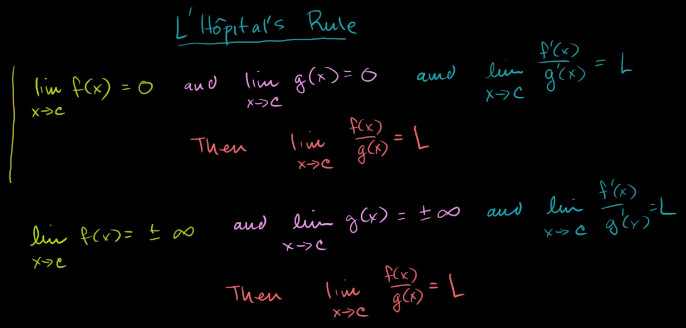 L'Hôpital's Rule
lim x→c f(x) = 0 and lim x→c g(x) = 0 and lim x→c f'(x)/g'(x) = L
Then lim x→c f(x)/g(x) = L
lim x→c f(x) = ± ∞ and lim x→c g(x) = ± ∞ and lim x→c f'(x)/g'(x) = L
Then lim x→c f(x)/g(x) = L